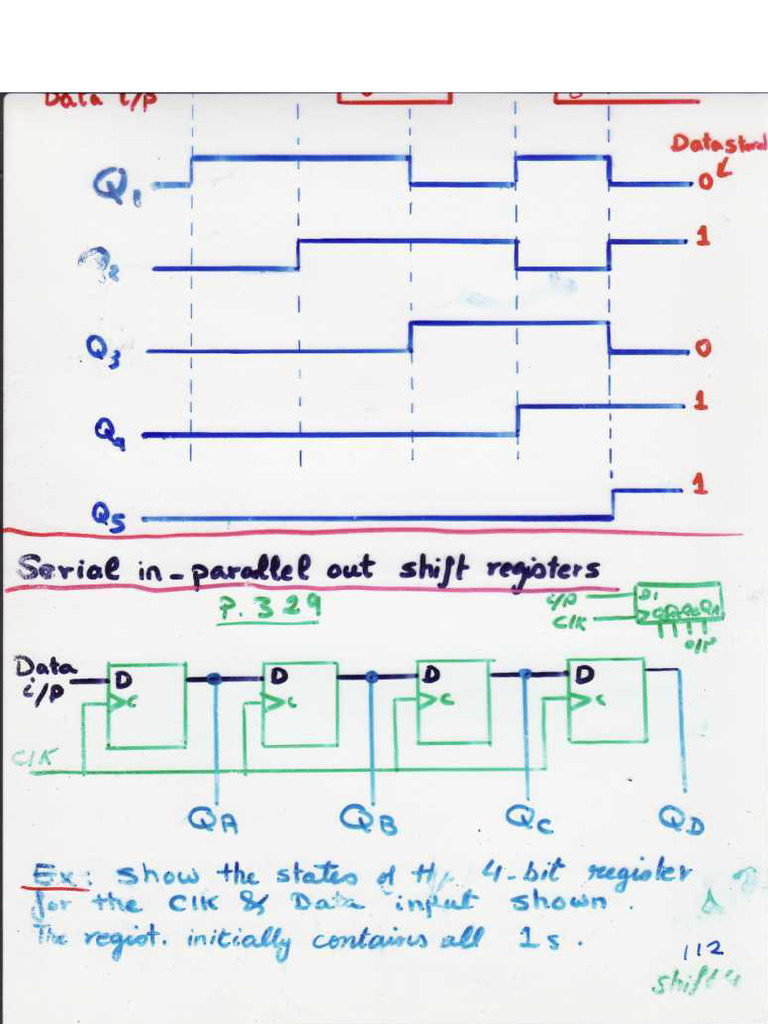 Data i/p
Data stored
Q1 0
Q2 1
Q3 0
Q4 1
Q5 1
Serial in-parallel out shift registers
P. 329
i/p D1
CLK
o/p
Data i/p D D D D
C C C C
CLK
QA QB QC QD
Ex: Show the states of the 4-bit register
for the CLK & Data input shown.
The regist. initially contains all 1s.
112
shift 4